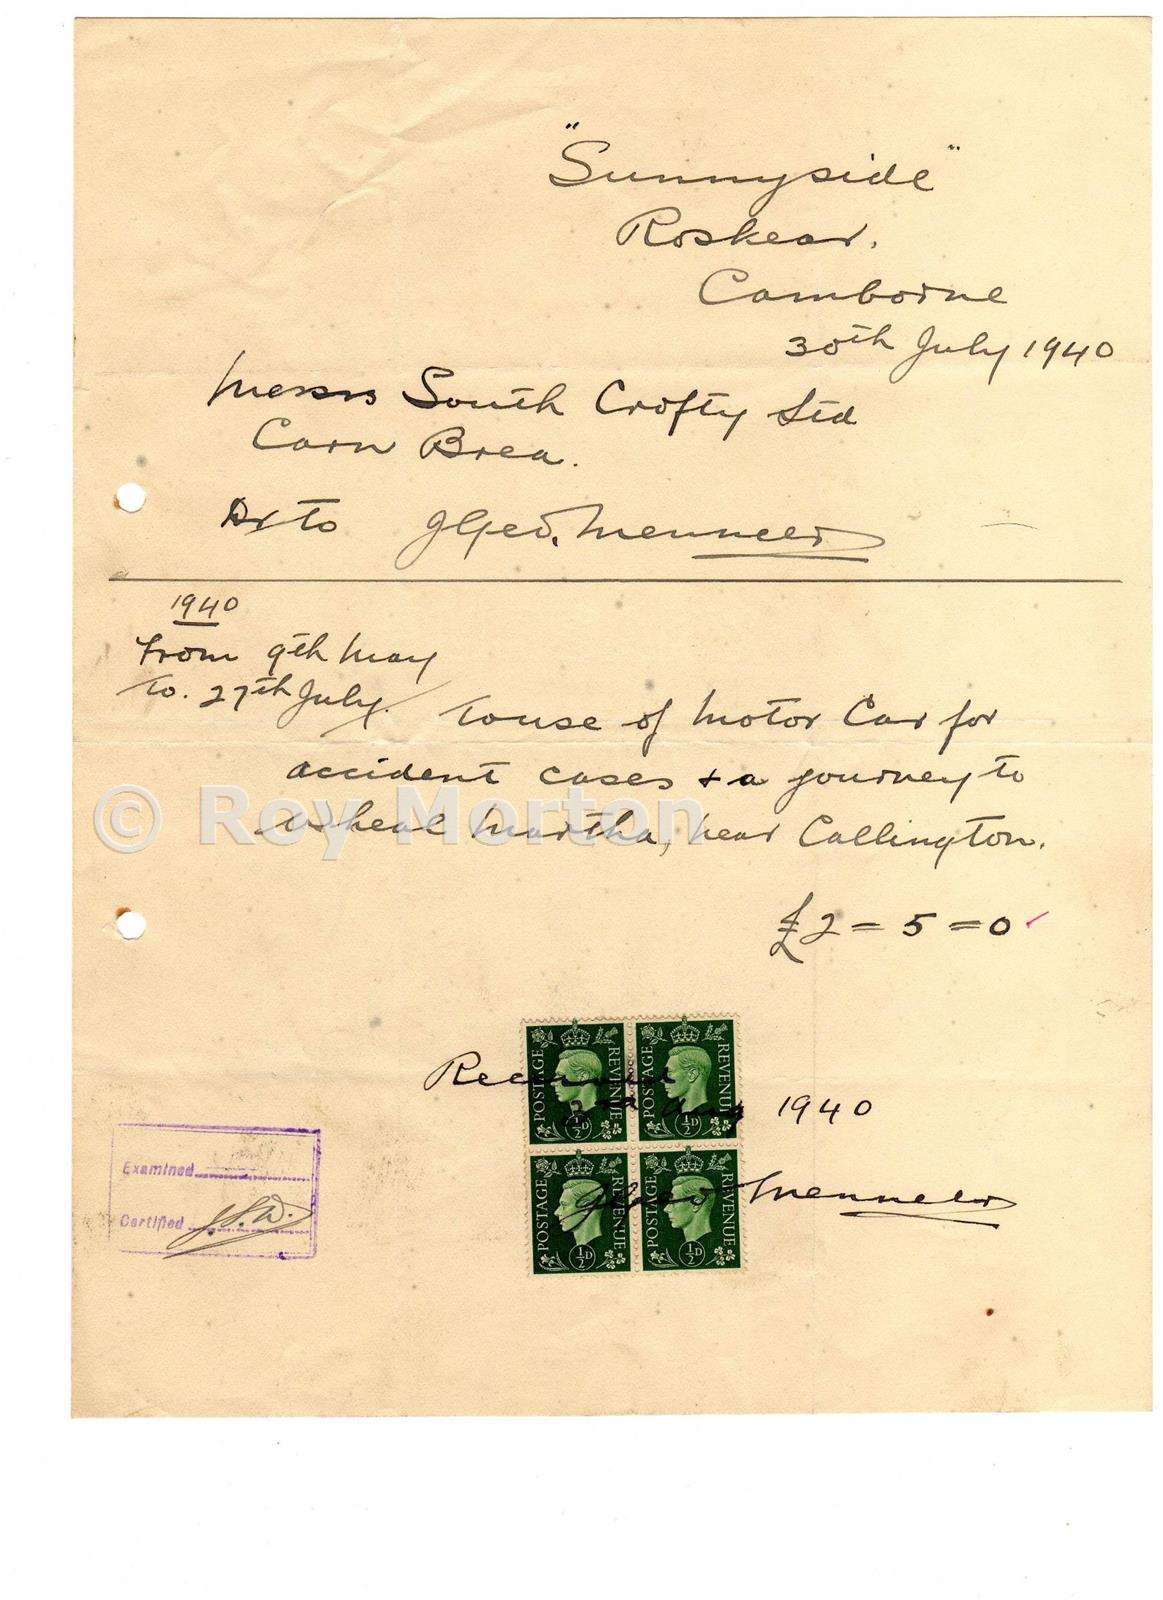 "Sunnyside"
Roskear.
Camborne
30th July 1940
Messrs South Crofty Ltd
Carn Brea.
Dr to J Geo. Menneer
1940
From 9th May
to. 27th July. To use of Motor Car for
accident cases + a journey to
Wheal Martha, near Callington.
£2=5=0
© Roy Morton
POSTAGE REVENUE ½D
POSTAGE REVENUE ½D
Received
2nd Aug 1940
POSTAGE REVENUE ½D
POSTAGE REVENUE ½D
J Geo Menneer
Examined
Certified